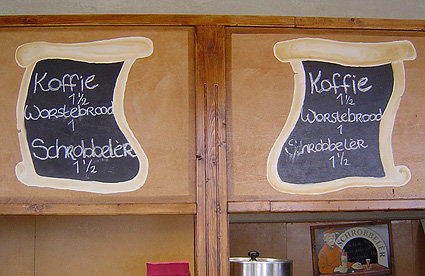 Koffie
1½
Worstebrood
1
Schrobbelèr
1½
Koffie
1½
Worstebrood
1
Schrobbelèr
1½
SCHROBBELÈR